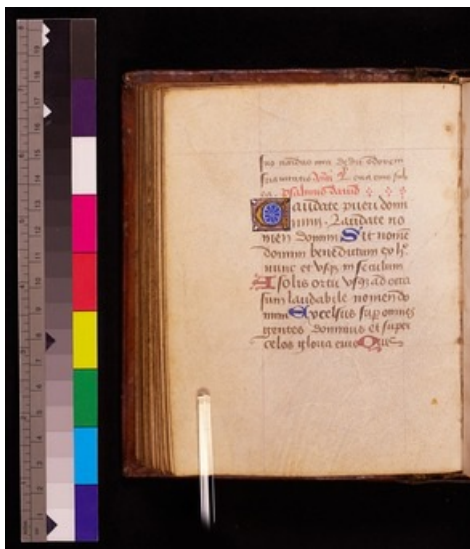 suavitatis
psalmus david
Laudate pueri domi
num. Laudate no
men domini Sit nomē
domini benedictum ex h⁹
nunc et vsq̄ in seculum
A solis ortu vsq̄ ad occa
sum laudabile nomen do
mini Excelsus sup omnes
gentes dominus et super
celos gloria eius Quis